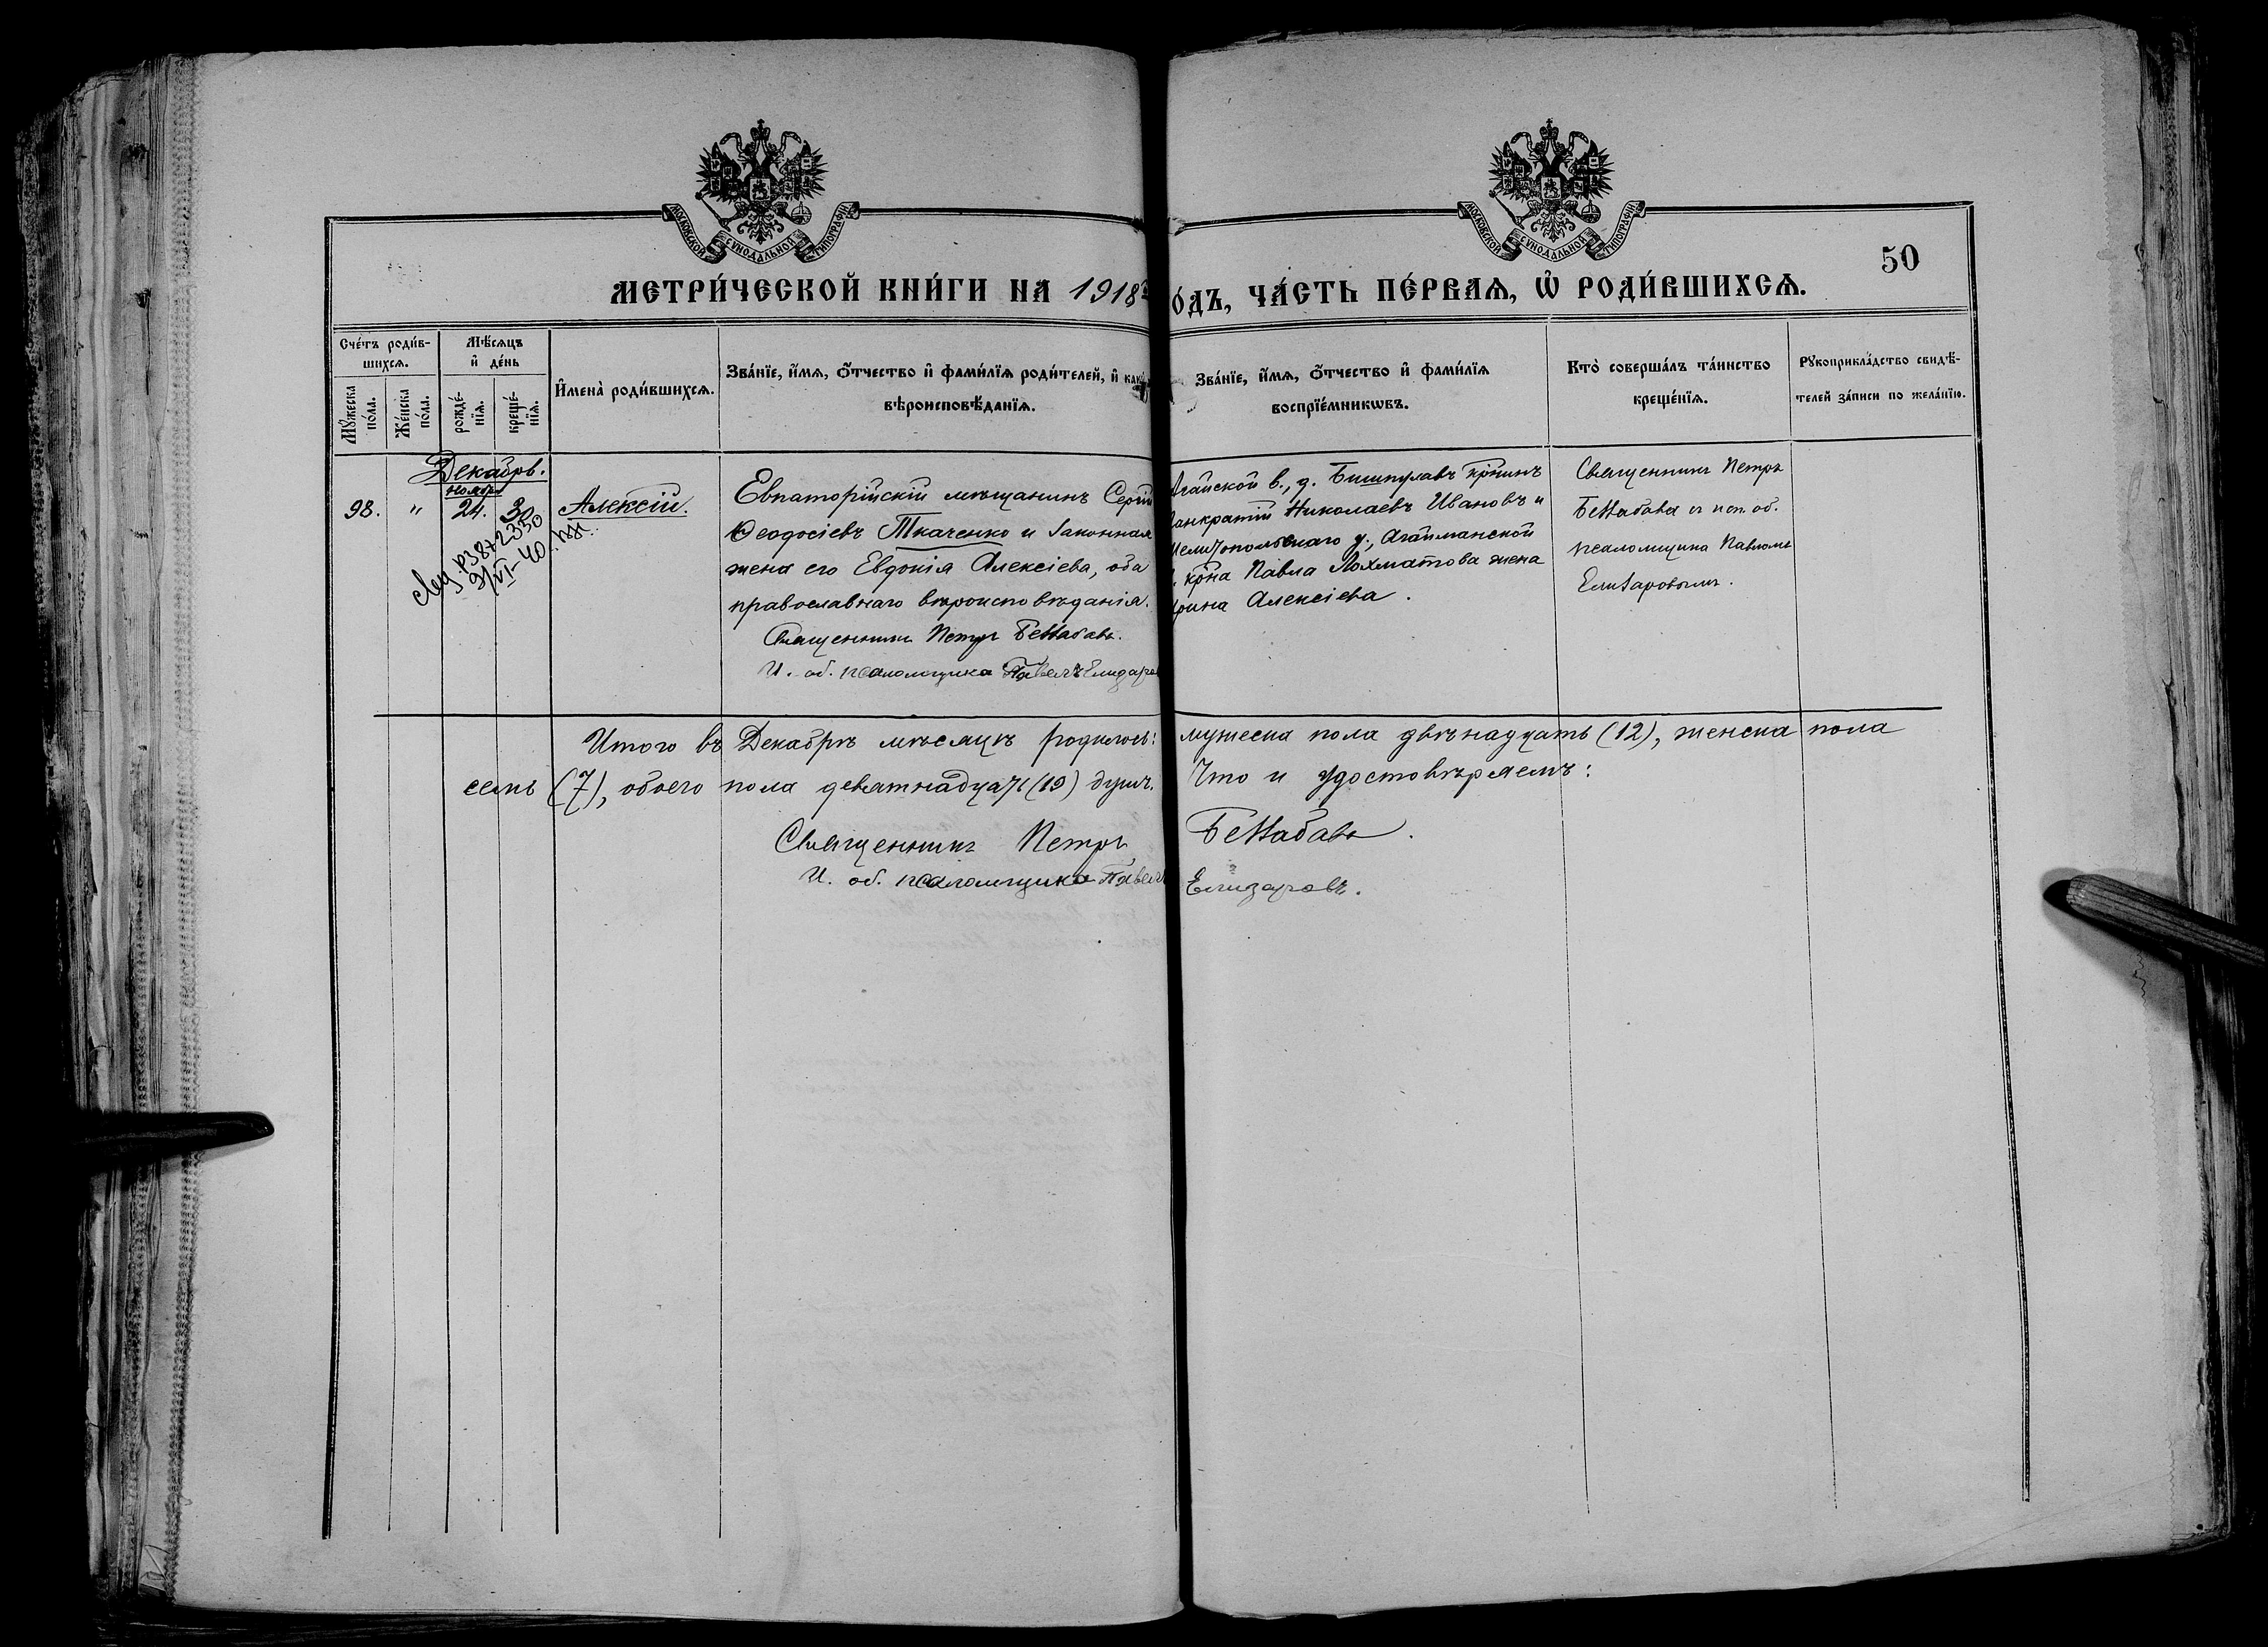 МОСКОВСКОЙ СУНОДАЛЬНОЙ ТИПОГРАФІИ
МОСКОВСКОЙ СУНОДАЛЬНОЙ ТИПОГРАФІИ
50
МЕТРИ́ЧЕСКОЙ КНИ́ГИ НА 1918 
О́ДЪ, ЧА́СТЬ ПЕ́РВАѦ, Ѡ҆ РОДИ́ВШИХСѦ.
Сче́тъ роди́в-
шихсѧ.
Мꙋ́жеска по́ла.
Же́нска по́ла.
Мѣ́сѧцъ
и҆ де́нь
рожде́-
нїѧ.
креще́-
нїѧ.
И҆мена̀ роди́вшихсѧ.
Зва́нїе, и҆́мѧ, ѻ҆́тчество и҆ фами́лїѧ роди́телей, и҆
вѣроисповѣ́данїѧ.
Зва́нїе, и҆́мѧ, ѻ҆́тчество и҆ фами́лїѧ
воспрїе́мникѡвъ.
Кто̀ соверша́лъ та́инство
креще́нїѧ.
Рꙋкоприкла́дство свидѣ́-
телей за́писи по жела́нїю.
Декабрь.
ноябр
98. " 24. 30 Алексій.
3/VI-40
Евпаторійскій мѣщанинъ Сергій
Ѳеодосіевъ Ткаченко и законная
жена его Евдокія Алексіева, оба
православнаго вѣроисповѣданія.
Священникъ Петръ
И. об. псаломщика Павелъ Елизаров
Агайской в., д. кр̃нинъ
анкратій Николаевъ Ивановъ и
Мелитопольскаго у., Агайманской
кр̃на Павла Лохматова жена
рина Алексіева.
Священникъ Петръ
с исп. об.
псаломщика Павломъ
Елизаровымъ.
Итого въ Декабрѣ мѣсяцѣ родилось: мужеска пола двѣнадцать (12), женска пола
семь (7), обоего пола девятнадцать (19) душъ. Что и удостовѣряемъ:
Священникъ Петръ
И. об. псаломщика Павелъ Елизаровъ.